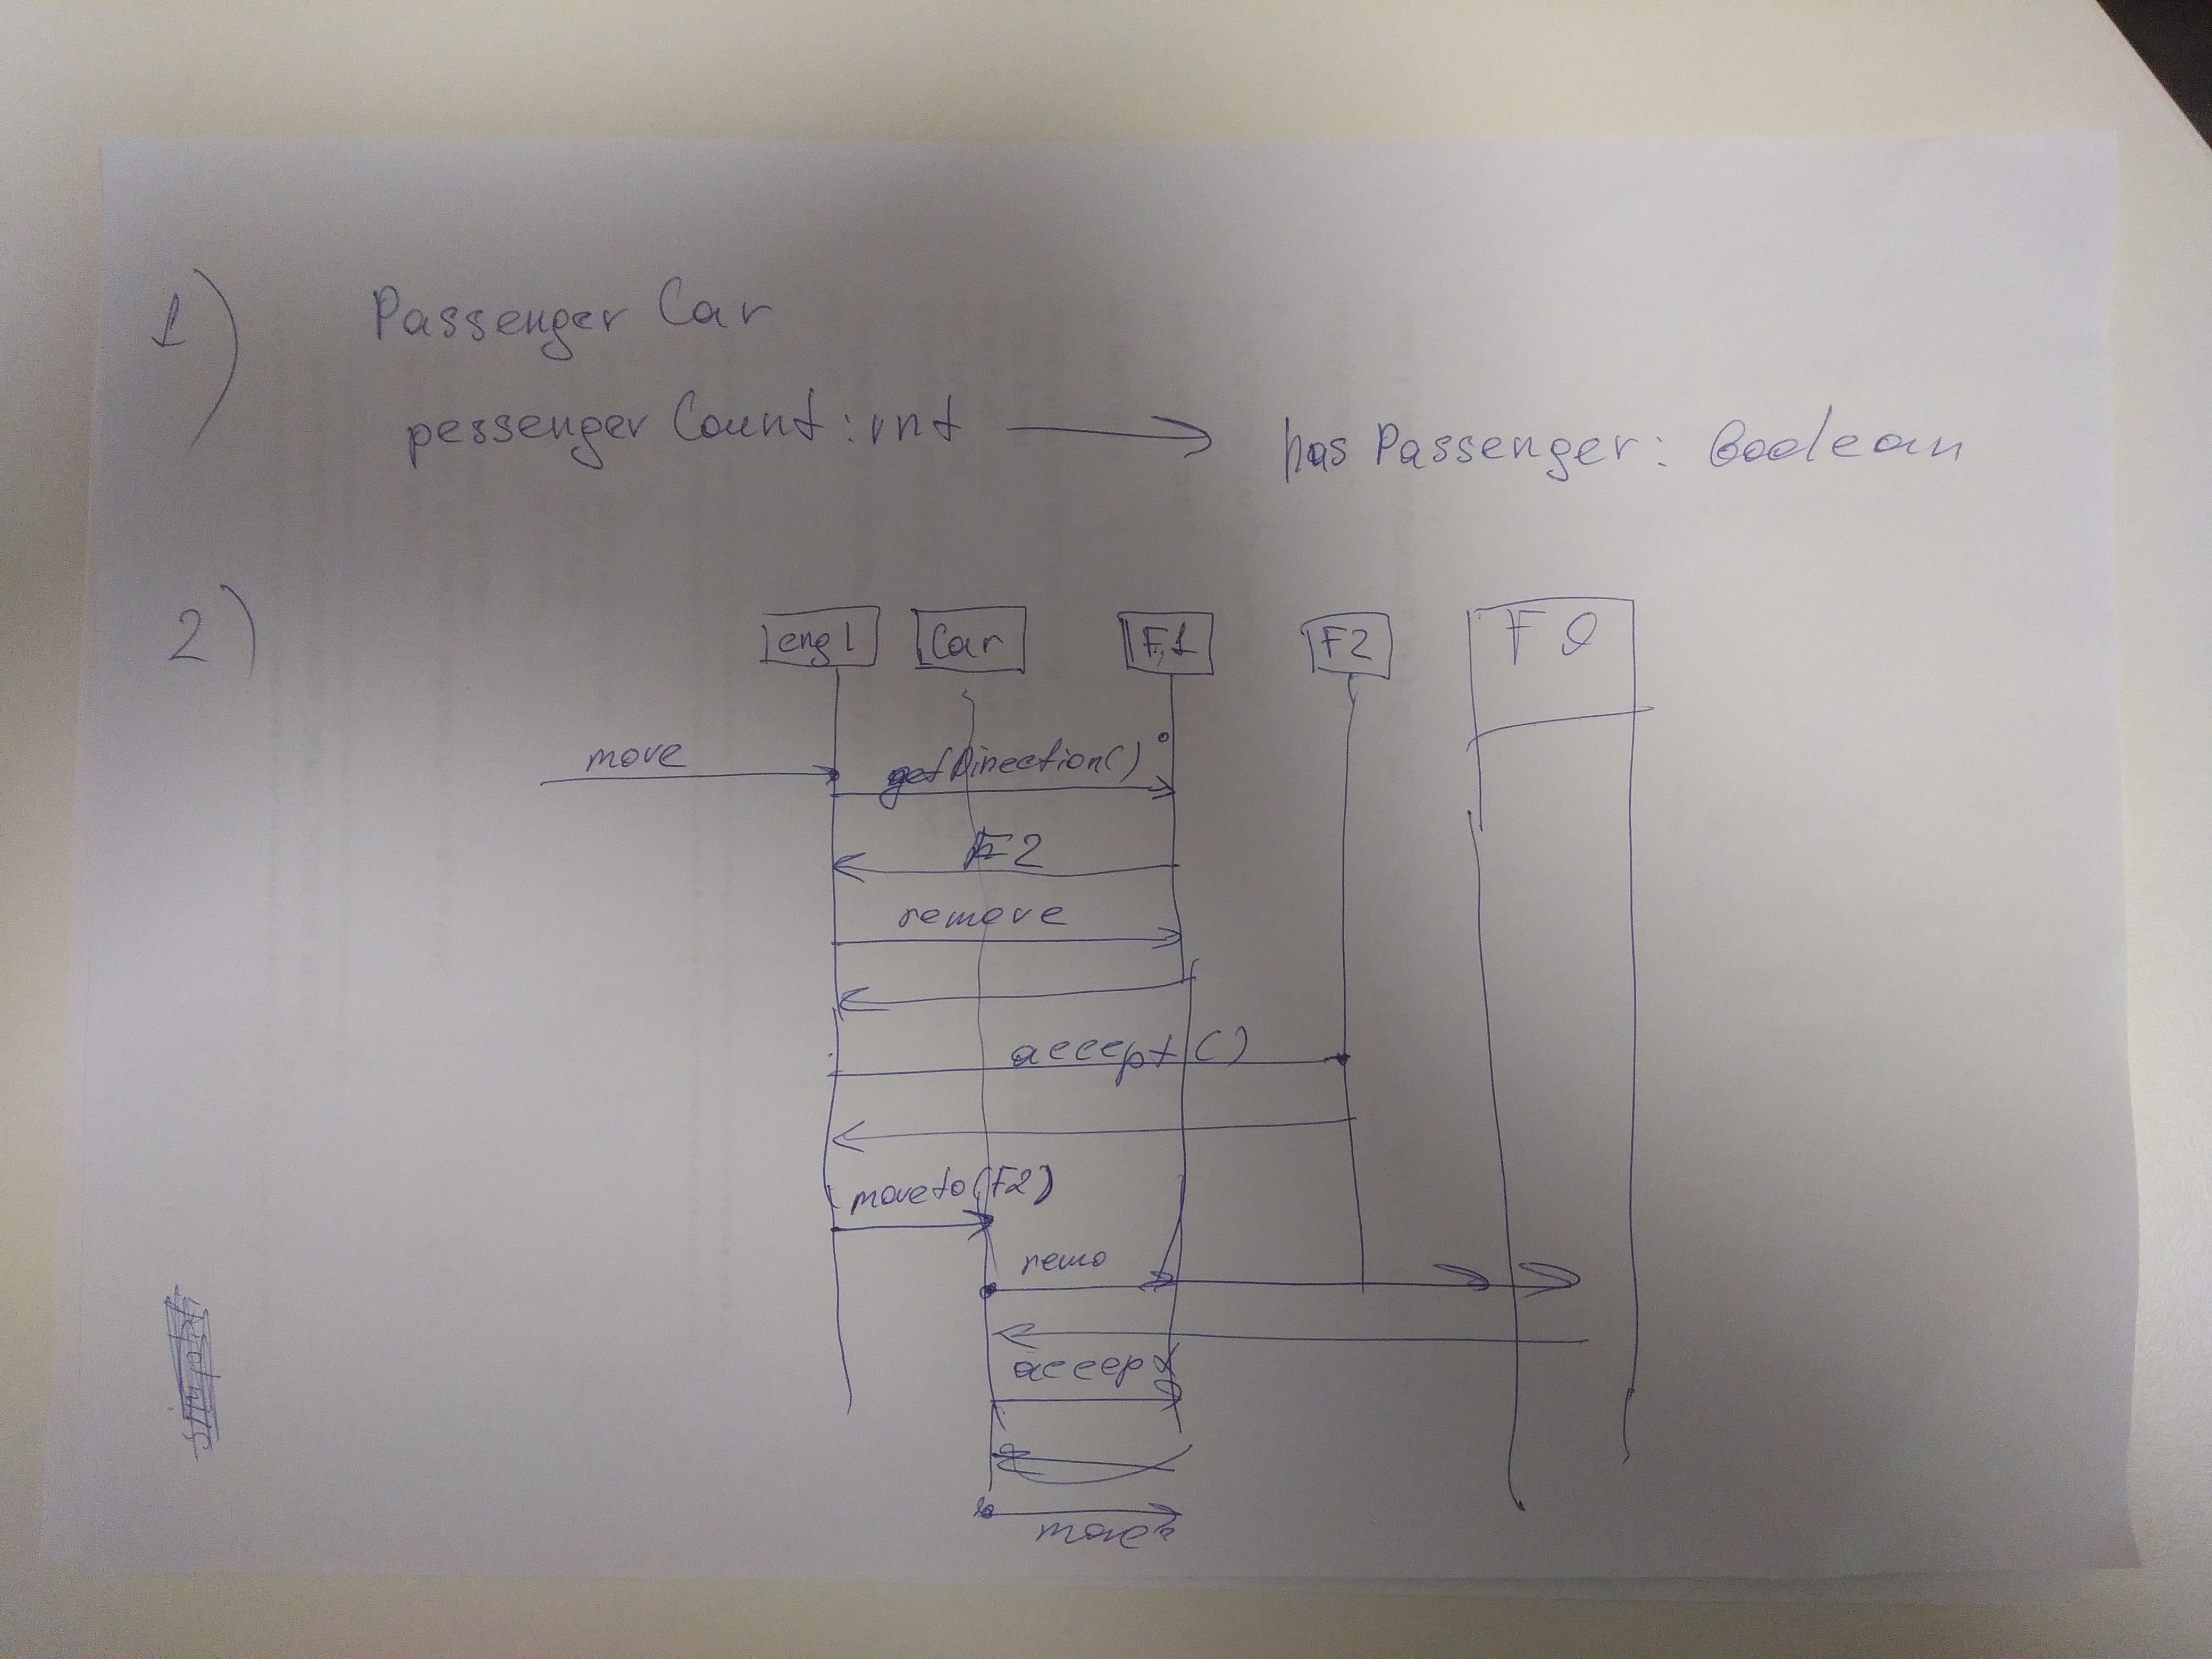 1) Passenger Car
pessenger Count : int → has Passenger : boolean
2)
eng1 Car F1 F2 F0
move
getDirection()
F2
remove
accept()
moveto(F2)
remo
accep
move